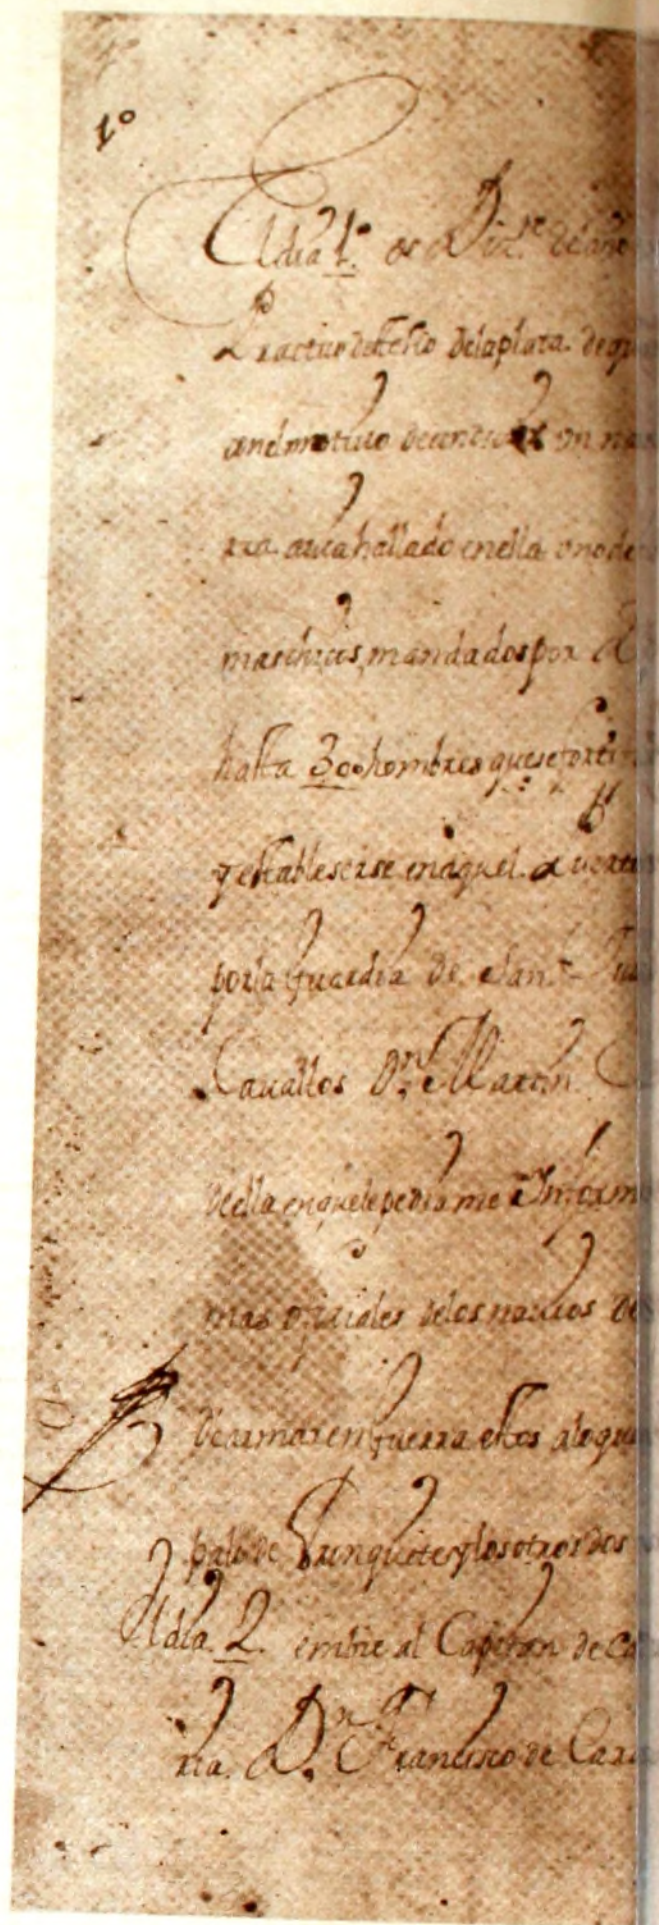 1º
El dia 1º de Diz.re del año
Practico deste Rio dela plata. de q
and
rra. avia hallado enella uno de
mas chicos, mandados por D
hasta 300 hombres que se forti
y establescerse en aquel
por la Guardia de San.t Jua
Cavallos D.n Martin
deella en que le pedia me Inform
mas ofiziales delos navios de
de armar en Guerra estos alo que
palo de Trinquete y los otros dos
El dia. 2. embie al Capitan de Ca
rra. D.n Francisco de Car